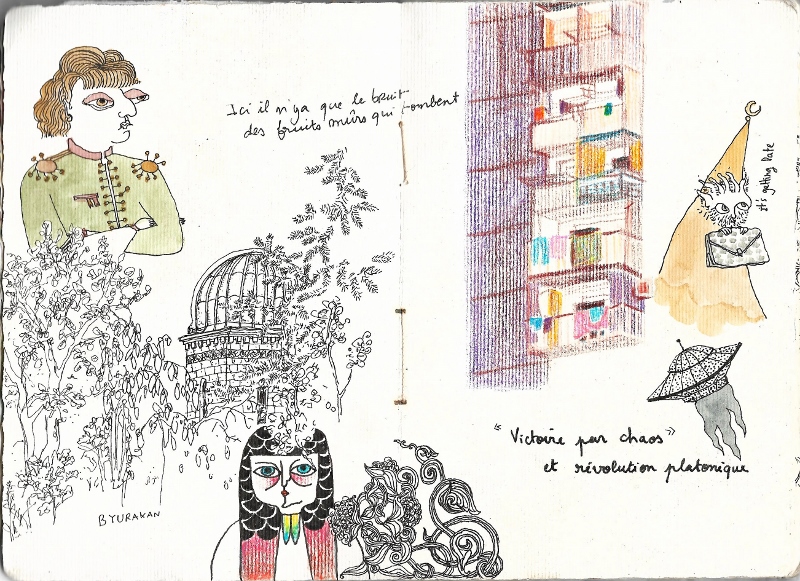 Ici il n'y a que le bruit
des fruits mûrs qui tombent
BYURAKAN
It's getting late
"Victoire par chaos"
et révolution platonique